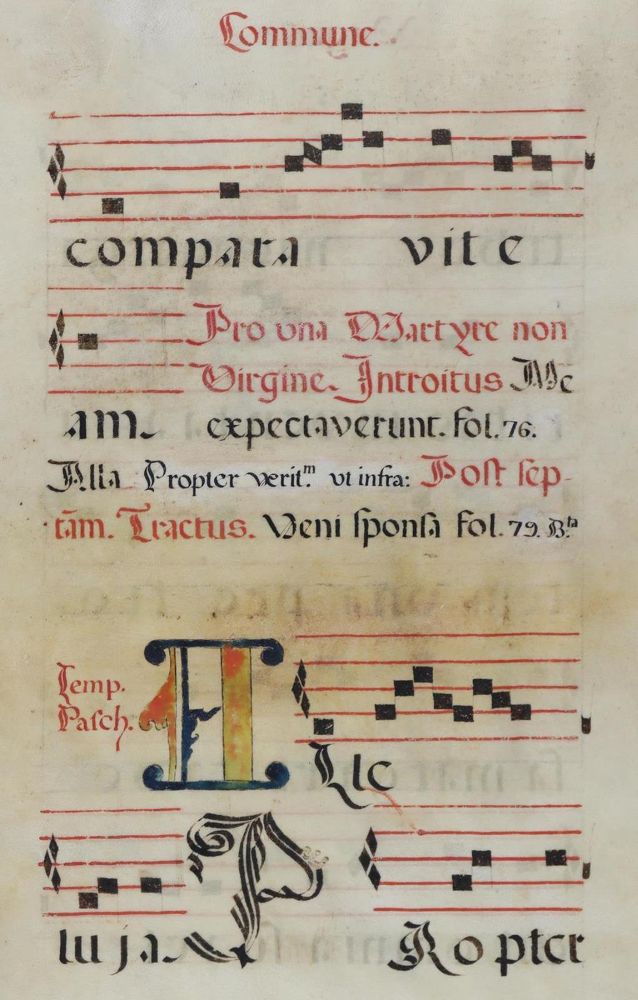 Commune.
compara vite
Pro una Martyre non
Virgine. Introitus Me
am. expectaverunt. fol. 76.
Alla Propter verit.m ut infra: Post sep-
tãm. Tractus. Veni sponsa fol. 79.
Temp.
Pasch.
A Lle
luja P Ropter